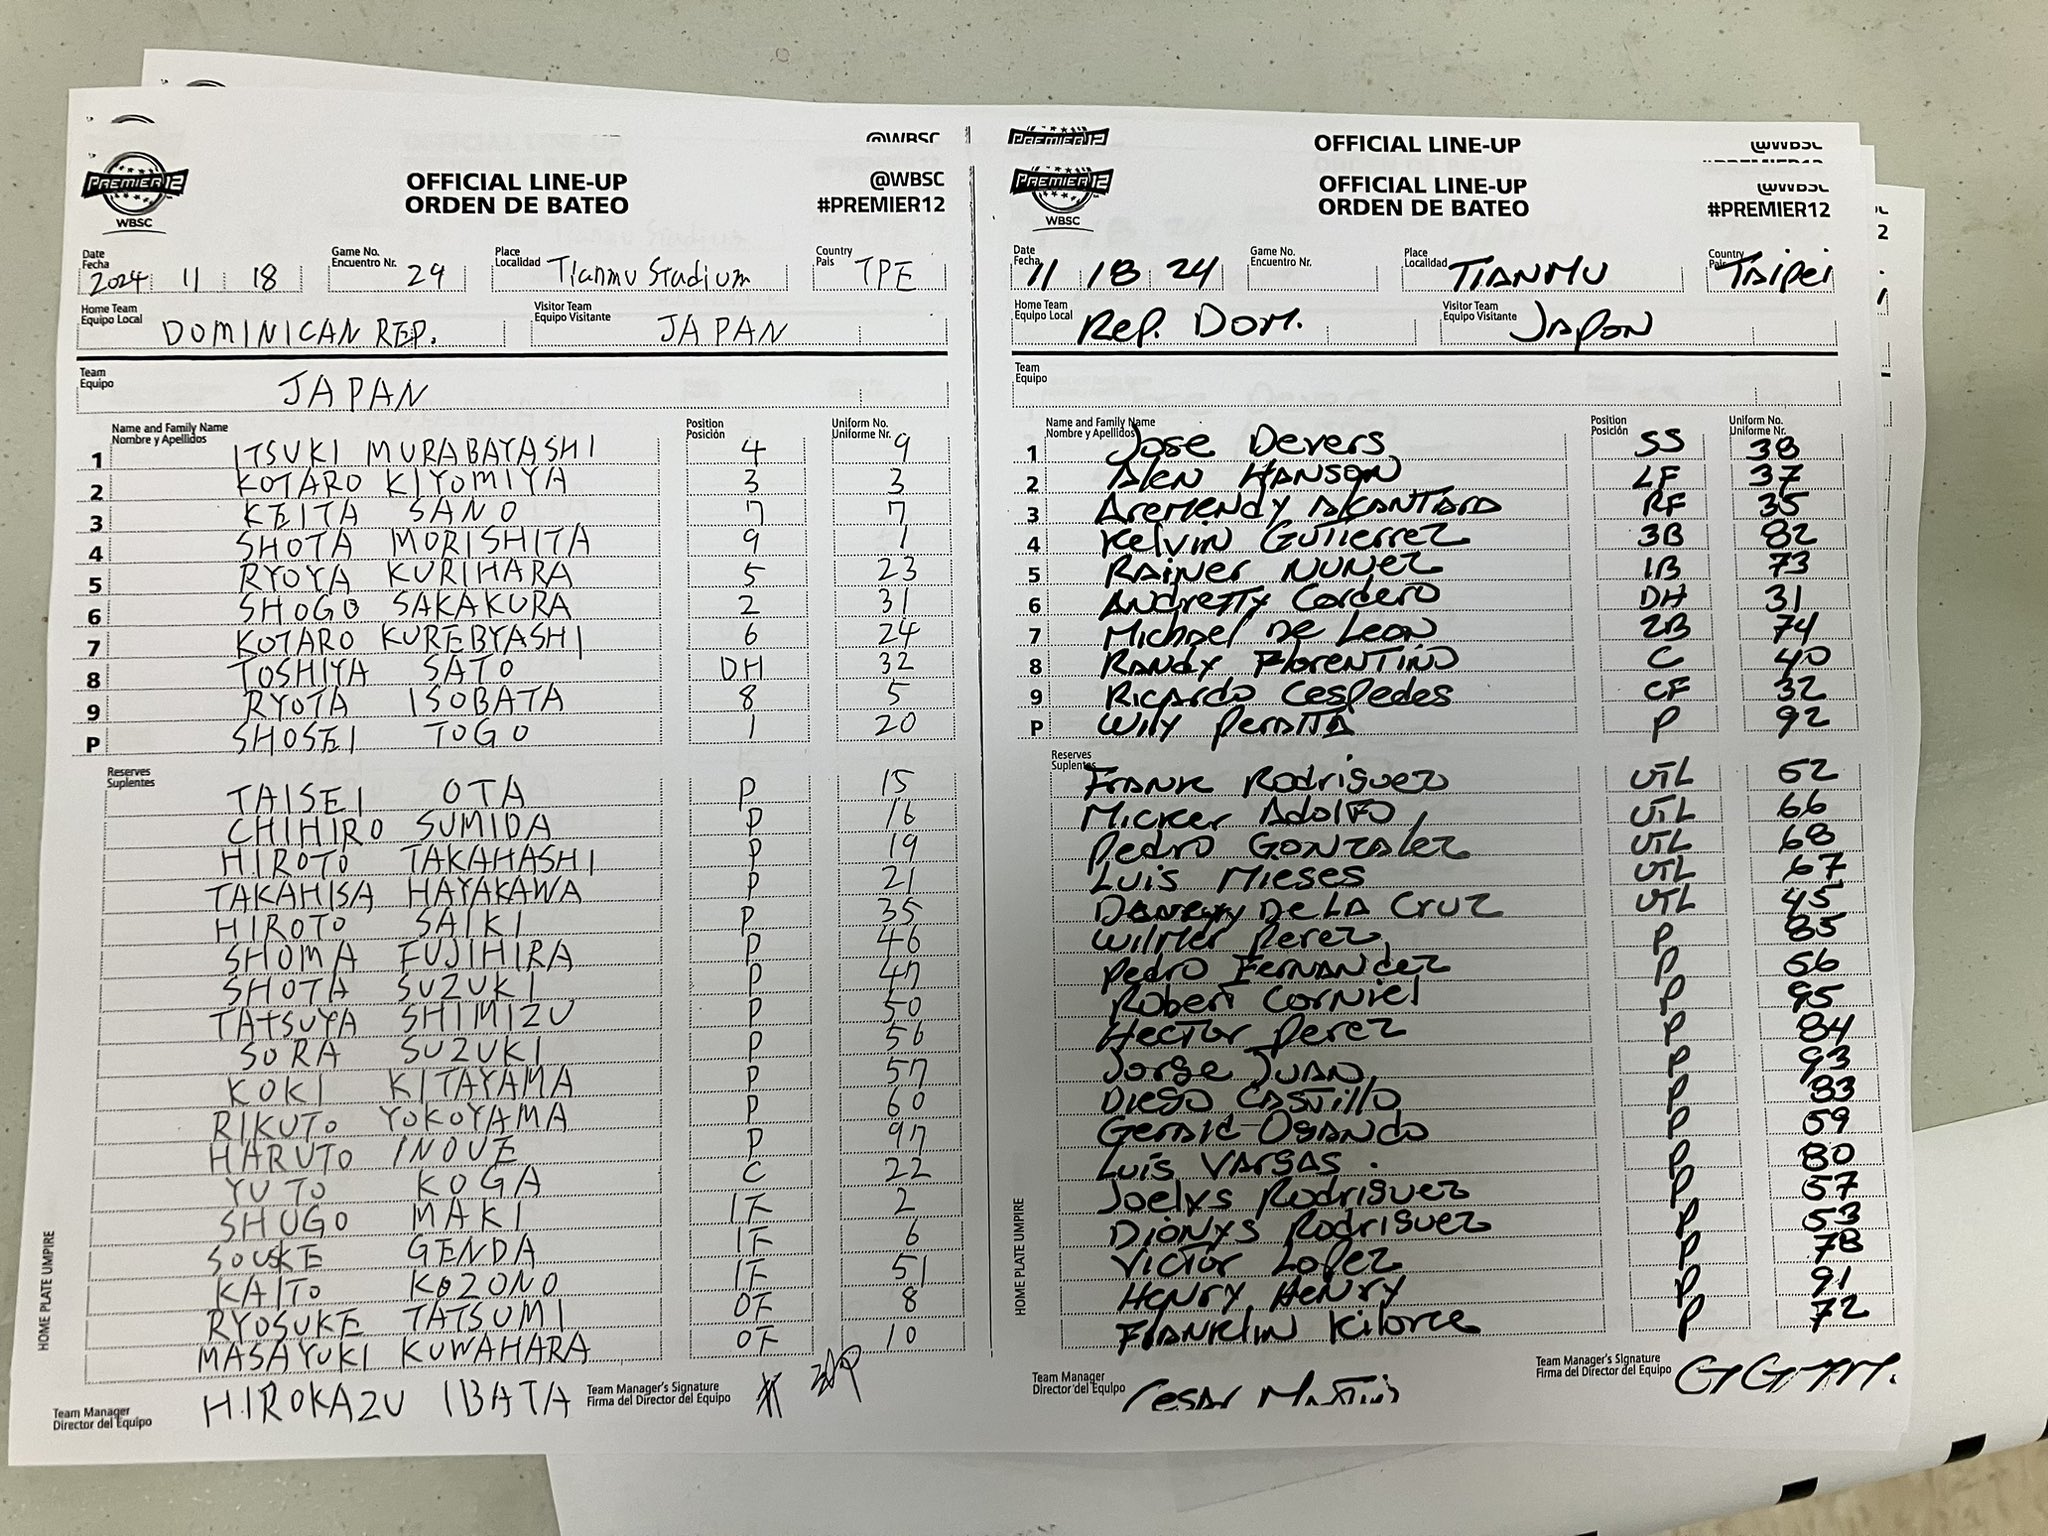 @WBSC
PREMIER12
WBSC
OFFICIAL LINE-UP
ORDEN DE BATEO
@WBSC
#PREMIER12
Date
Fecha 2024 11 18
Game No.
Encuentro Nr. 29
Place
Localidad Tianmu Stadium
Country
País TPE
Home Team
Equipo Local DOMINICAN REP.
Visitor Team
Equipo Visitante JAPAN
Team
Equipo JAPAN
Name and Family Name
Nombre y Apellidos
Position
Posición
Uniform No.
Uniforme Nr.
1 ITSUKI MURABAYASHI 4 9
2 KOTARO KIYOMIYA 3 3
3 KEITA SANO 7 7
4 SHOTA MORISHITA 9 1
5 RYOYA KURIHARA 5 23
6 SHOGO SAKAKURA 2 31
7 KOTARO KUREBYASHI 6 24
8 TOSHIYA SATO DH 32
9 RYOTA ISOBATA 8 5
P SHOSEI TOGO 1 20
Reserves
Suplentes
TAISEI OTA P 15
CHIHIRO SUMIDA P 16
HIROTO TAKAHASHI P 19
TAKAHISA HAYAKAWA P 21
HIROTO SAIKI P 35
SHOMA FUJIHIRA P 46
SHOTA SUZUKI P 47
TATSUYA SHIMIZU P 50
SORA SUZUKI P 56
KOKI KITAYAMA P 57
RIKUTO YOKOYAMA P 60
HARUTO INOUE P 97
YUTO KOGA C 22
SHUGO MAKI IF 2
SOUSKE GENDA IF 6
KAITO KOZONO IF 51
RYOSUKE TATSUMI OF 8
MASAYUKI KUWAHARA OF 10
HOME PLATE UMPIRE
Team Manager
Director del Equipo HIROKAZU IBATA
Team Manager's Signature
Firma del Director del Equipo
PREMIER12
OFFICIAL LINE-UP
@WBSC
#PREMIER12
PREMIER12
WBSC
OFFICIAL LINE-UP
ORDEN DE BATEO
@WBSC
#PREMIER12
Date
Fecha 11 18 24
Game No.
Encuentro Nr.
Place
Localidad TIANMU
Country
País Taipei
Home Team
Equipo Local Rep. Dom.
Visitor Team
Equipo Visitante Japon
Team
Equipo
Name and Family Name
Nombre y Apellidos
Position
Posición
Uniform No.
Uniforme Nr.
1 Jose Devers SS 38
2 Alen Hanson LF 37
3 Aremendy Alcantara RF 35
4 Kelvin Gutierrez 3B 82
5 Rainer Nunez 1B 73
6 Andretty Cordero DH 31
7 Michael De Leon 2B 74
8 Randy Florentino C 40
9 Ricardo Cespedes CF 32
P Wily Peralta P 92
Reserves
Suplentes
Frank Rodriguez UTL 52
Micker Adolfo UTL 66
Pedro Gonzalez UTL 68
Luis Mieses UTL 67
De La Cruz UTL 45
Wilmer Perez P 85
Pedro Fernandez P 56
Robert Corniel P 95
Hector Perez P 84
Jorge Juan P 93
Diego Castillo P 83
Gerald Ogando P 59
Luis Vargas P 80
Joelys Rodriguez P 57
Dionys Rodriguez P 53
Victor Lopez P 78
Henry Henry P 91
Franklin Kilome P 72
HOME PLATE UMPIRE
Team Manager
Director del Equipo Cesar Martin
Team Manager's Signature
Firma del Director del Equipo